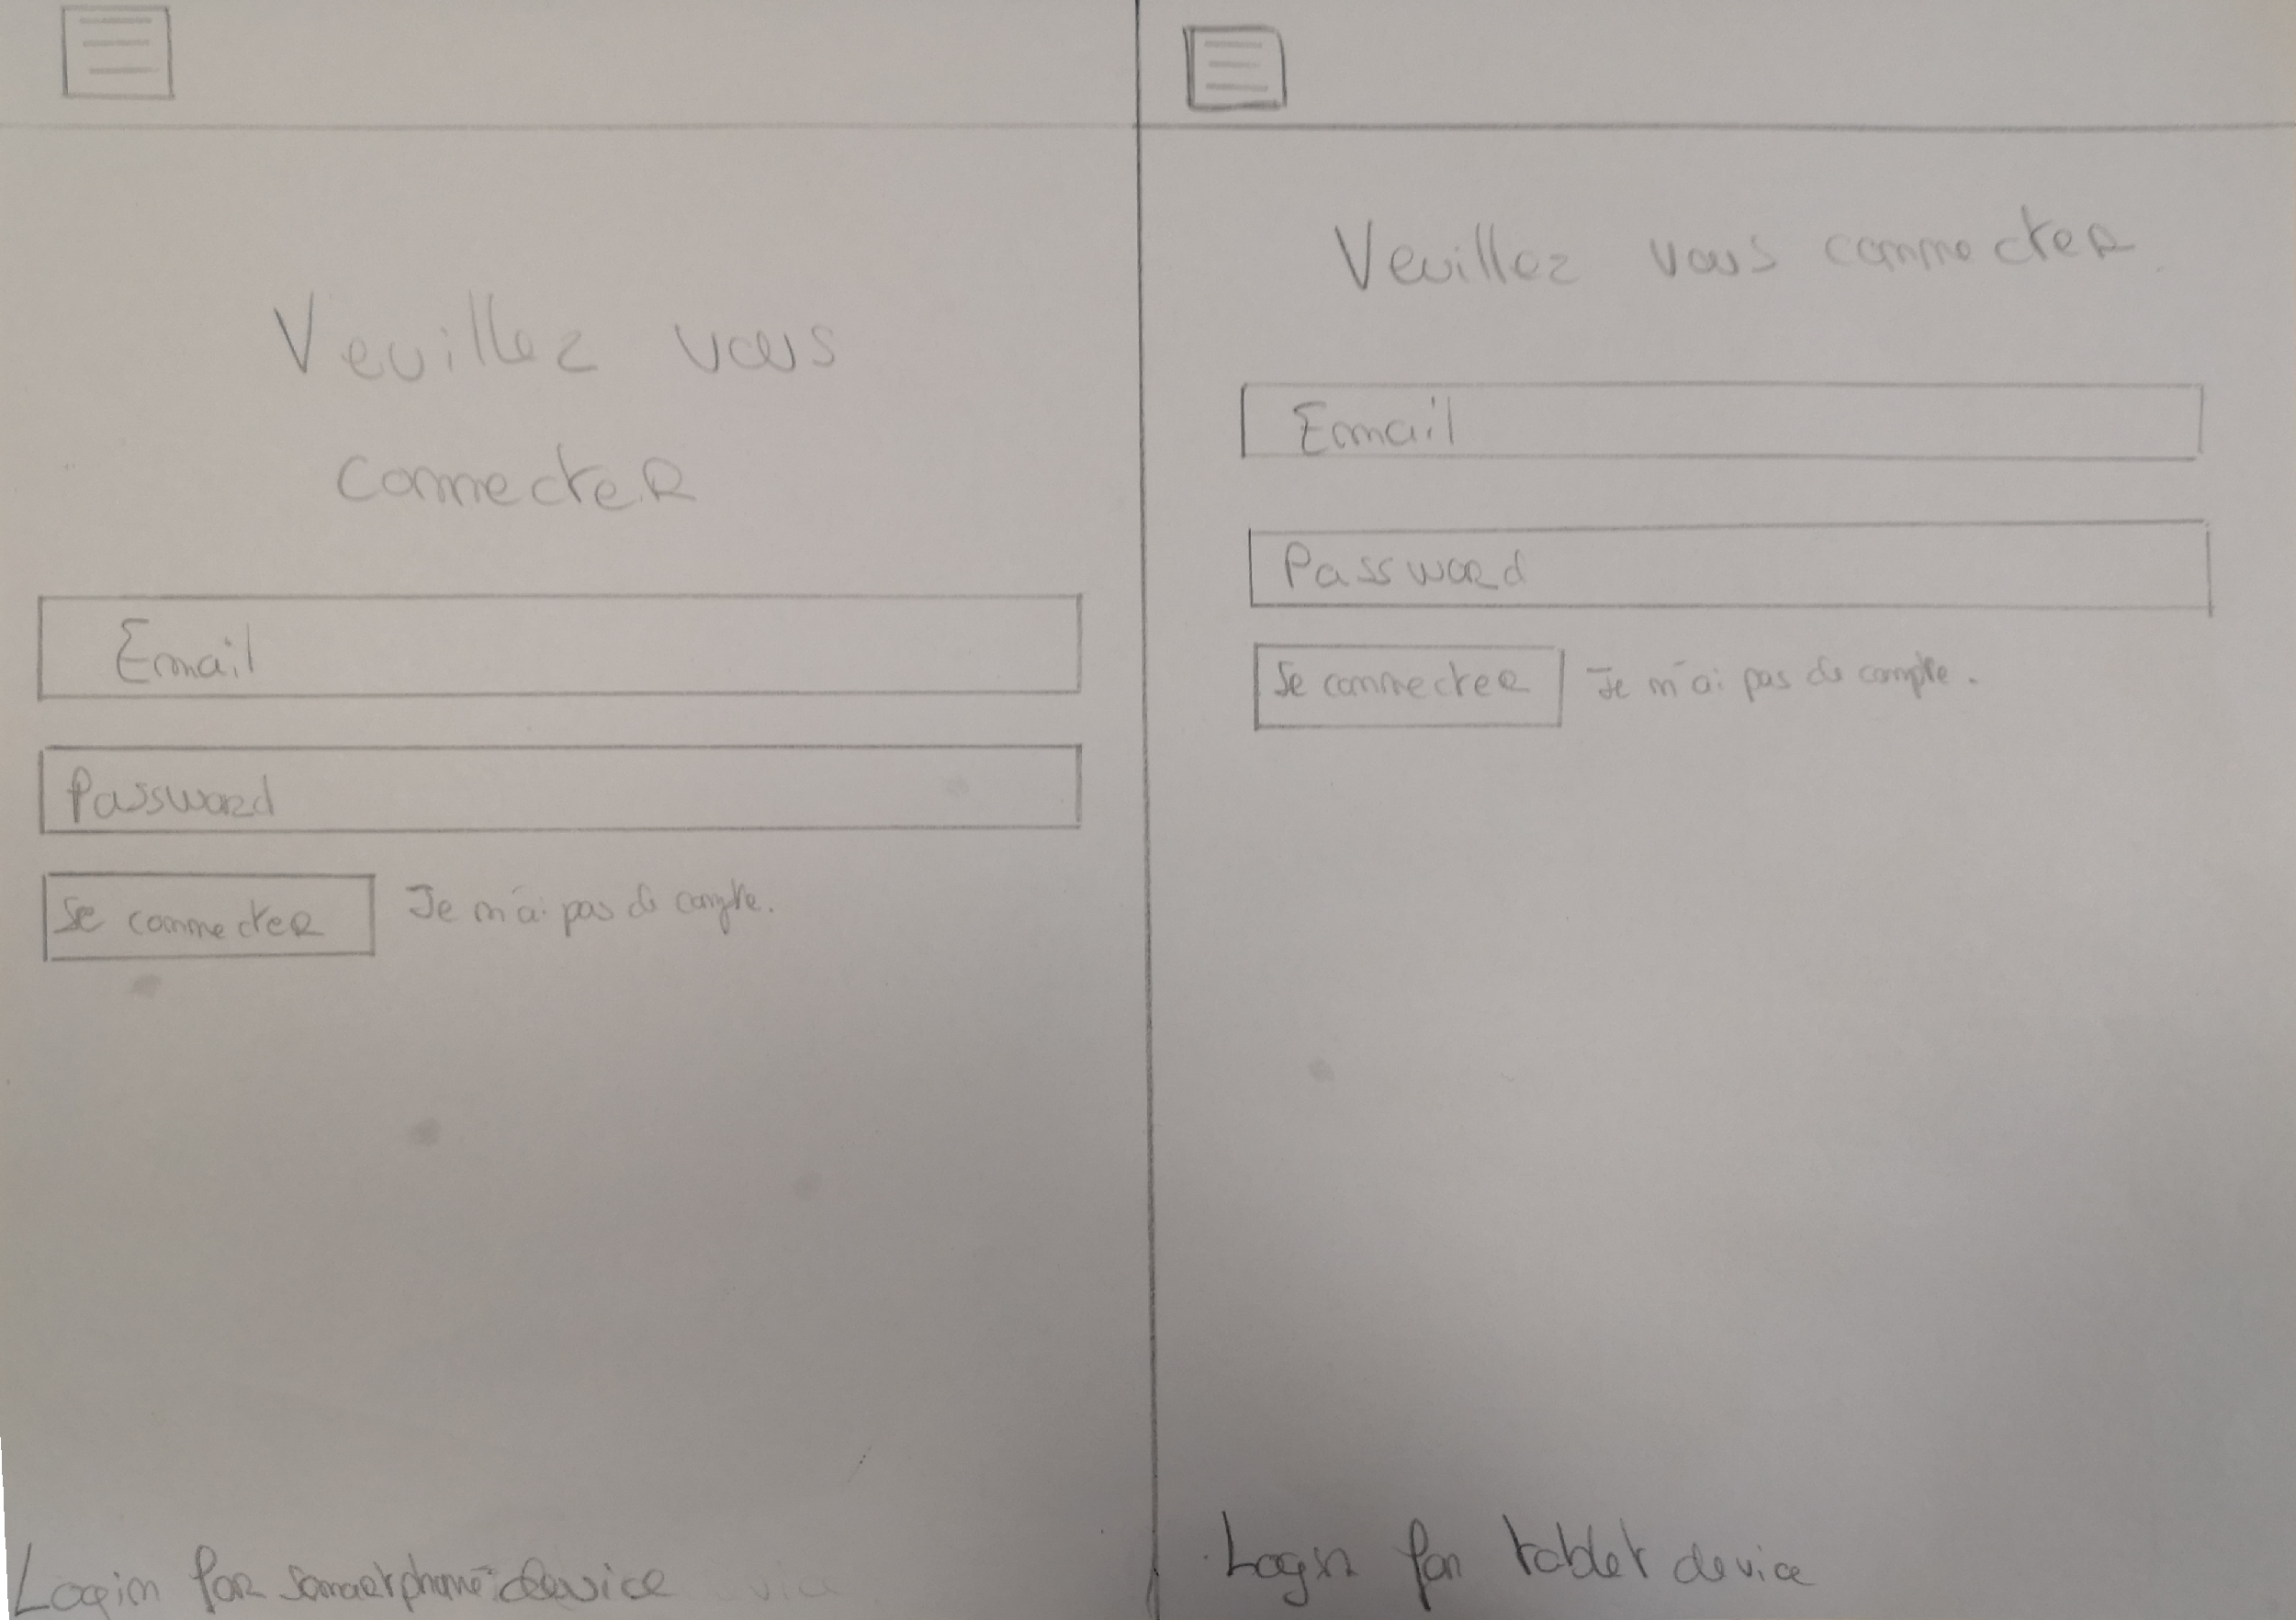 Veuillez vous
connecter
Email
Password
Se connecter
Je n'ai pas de compte.
Login for smartphone device
Veuillez vous connecter
Email
Password
Se connecter
Je n'ai pas de compte.
Login for tablet device